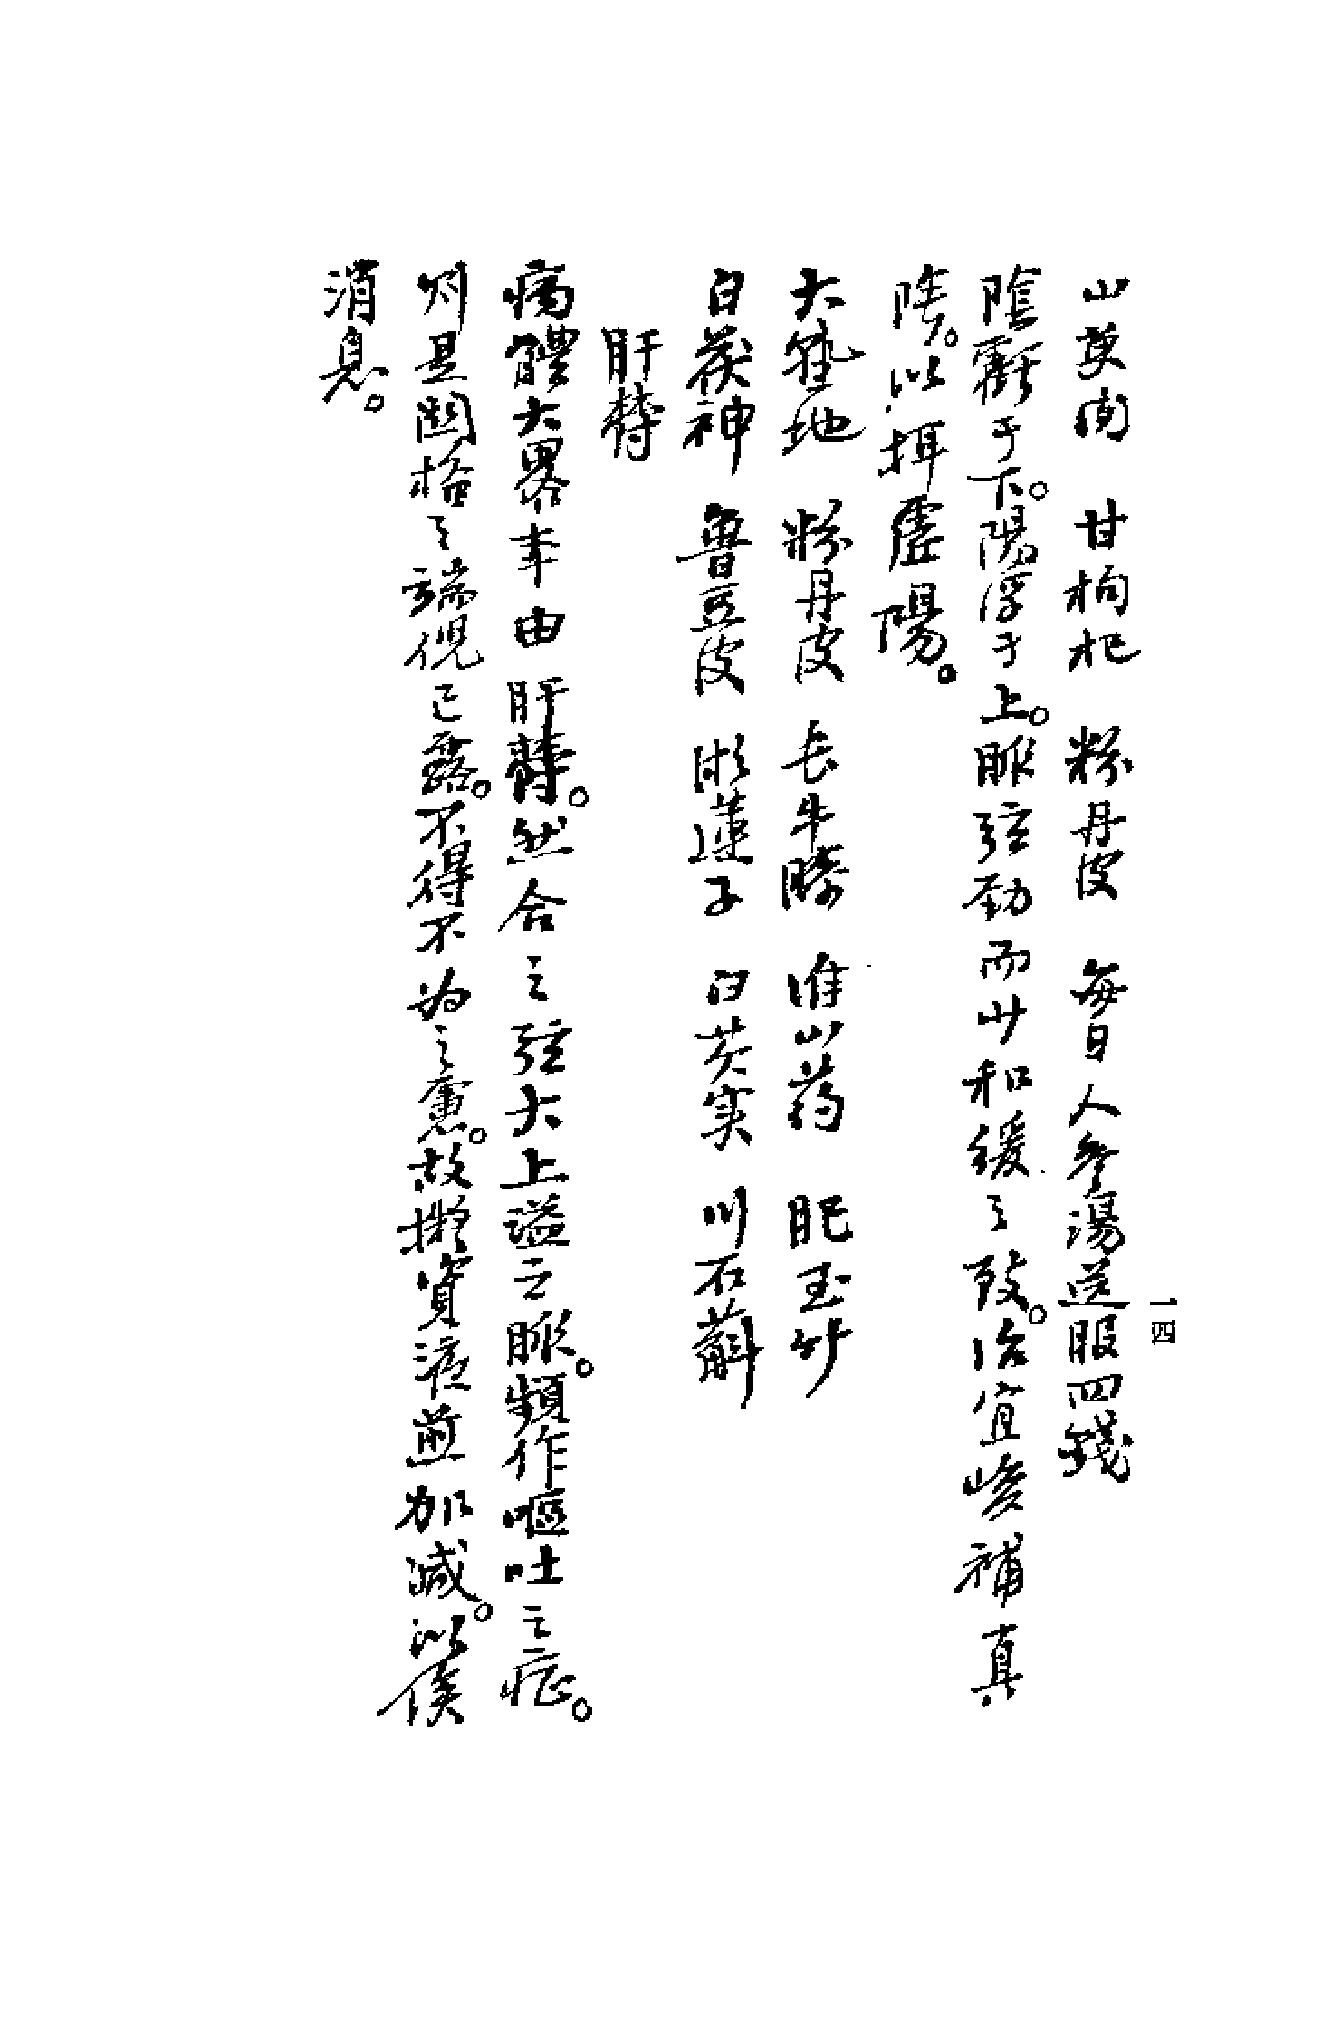 山萸肉　甘枸杞　粉丹皮　每日人參湯送服四錢
陰虧于下。陽浮于上。脈弦勁而少和緩之致。治宜峻補真
陰。以揖虛陽。
大熟地　粉丹皮　長牛膝　淮山药　肥玉竹
白茯神　魯豆皮　湘蓮子　白芡实　川石斛
肝鬱
病體大畧率由肝鬱。然合之弦大上溢之脈。頻作嘔吐之症。
則是關格之端倪已露。不得不为之慮。故擬資液煎加減。以候
消息。
一四